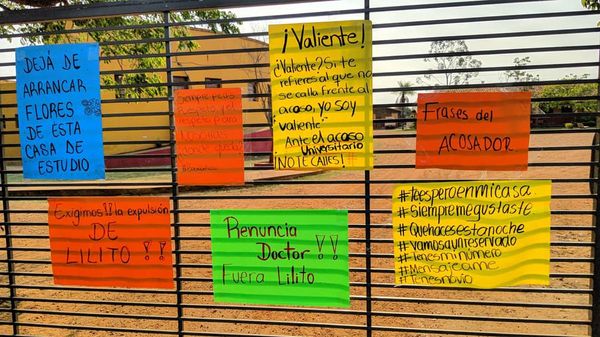 DEJÁ DE
ARRANCAR
FLORES
DE ESTA
CASA DE
ESTUDIO
¡Valiente!
¿Valiente? Si te
refieres al que no
se calla frente al
acoso, yo soy
"valiente"
Ante el acoso
Universitario
¡NO TE CALLES!
Frases del
ACOSADOR
Exigimos!! la expulsión
DE
LILITO !!
Renuncia
Doctor !!
Fuera Lilito
#teesperoenmicasa
#Siempremegustaste
#Quehacesestanoche
#vamosaunreservado
#Tenesminúmero
#Mensajeame
#Tenesnovio